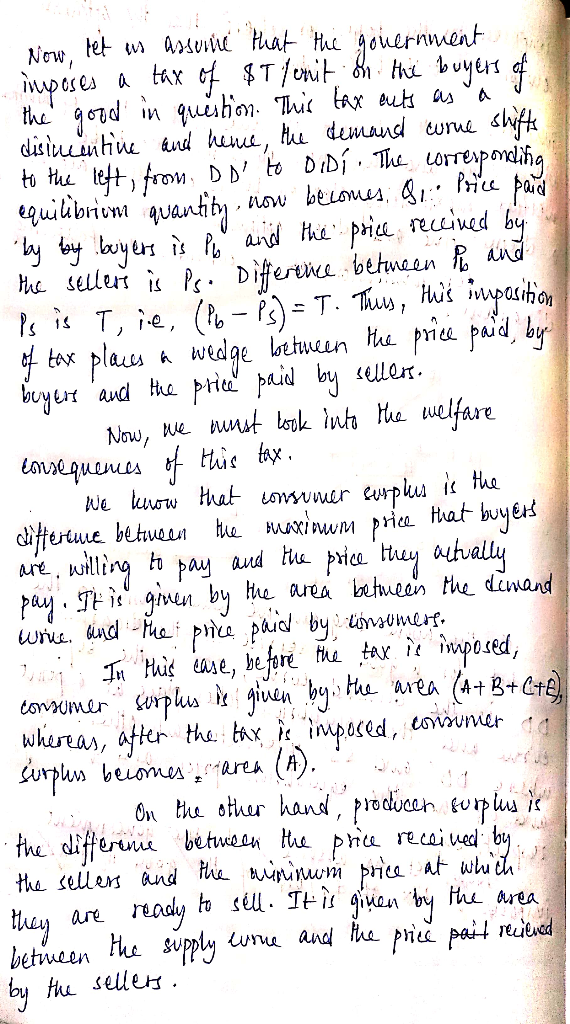 Now, let us assume that the government
imposes a tax of $T/unit on the buyers of
the good in question. This tax cuts as a
disincentive and hence, the demand curve shifts
to the left, from DD' to D₁D₁'. The corresponding
equilibrium quantity now becomes Q₁. Price paid
by by buyers is Pb and the price received by
the sellers is Ps. Difference between Pb and
Ps is T, i.e, (Pb – Ps) = T. Thus, this imposition
of tax places a wedge between the price paid, by
buyers and the price paid by sellers.
Now, we must look into the welfare
consequences of this tax.
We know that consumer surplus is the
difference between the maximum price that buyers
are willing to pay and the price they actually
pay. It is given by the area between the demand
curve and the price paid by consumers.
In this case, before the tax is imposed,
consumer surplus is given by the area (A+B+C+E),
whereas, after the tax is imposed, consumer
surplus becomes area (A).
On the other hand, producer surplus is
the difference between the price received by
the sellers and the minimum price at which
they are ready to sell. It is given by the area
between the supply curve and the price paid recieved
by the sellers.